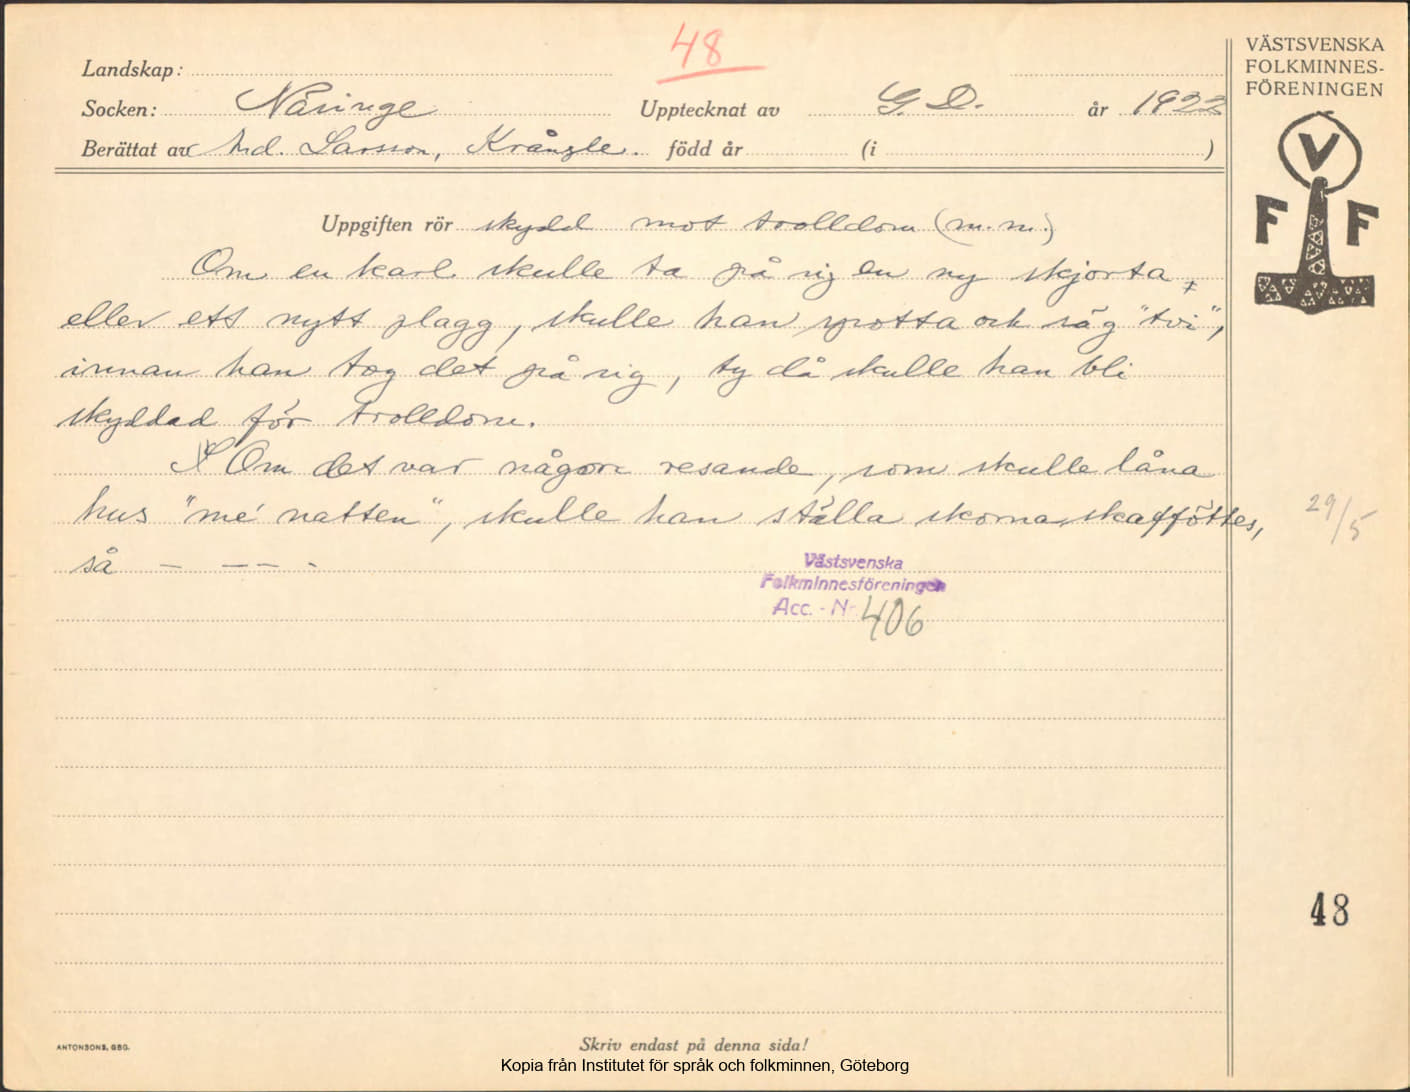 48
VÄSTSVENSKA
FOLKMINNES-
FÖRENINGEN
Landskap:
Socken: Näsinge Upptecknat av G. D. år 1922
Berättat av Md. Larsson, Krångle. född år (i )
V
F F
Uppgiften rör skydd mot trolldom (m.m.)
Om en karl skulle ta på sig en ny skjorta
eller ett nytt plagg, skulle han spotta och säg "tvi",
innan han tog det på sig, ty då skulle han bli
skyddad för trolldom.
Om det var någon resande, som skulle låna
hus "me' natten", skulle han ställa skorna skafföttes,
så — — — -
29/5
Västsvenska
Folkminnesföreningen
Acc. - Nr. 406
48
ANTONSONS, GBG.
Skriv endast på denna sida!
Kopia från Institutet för språk och folkminnen, Göteborg